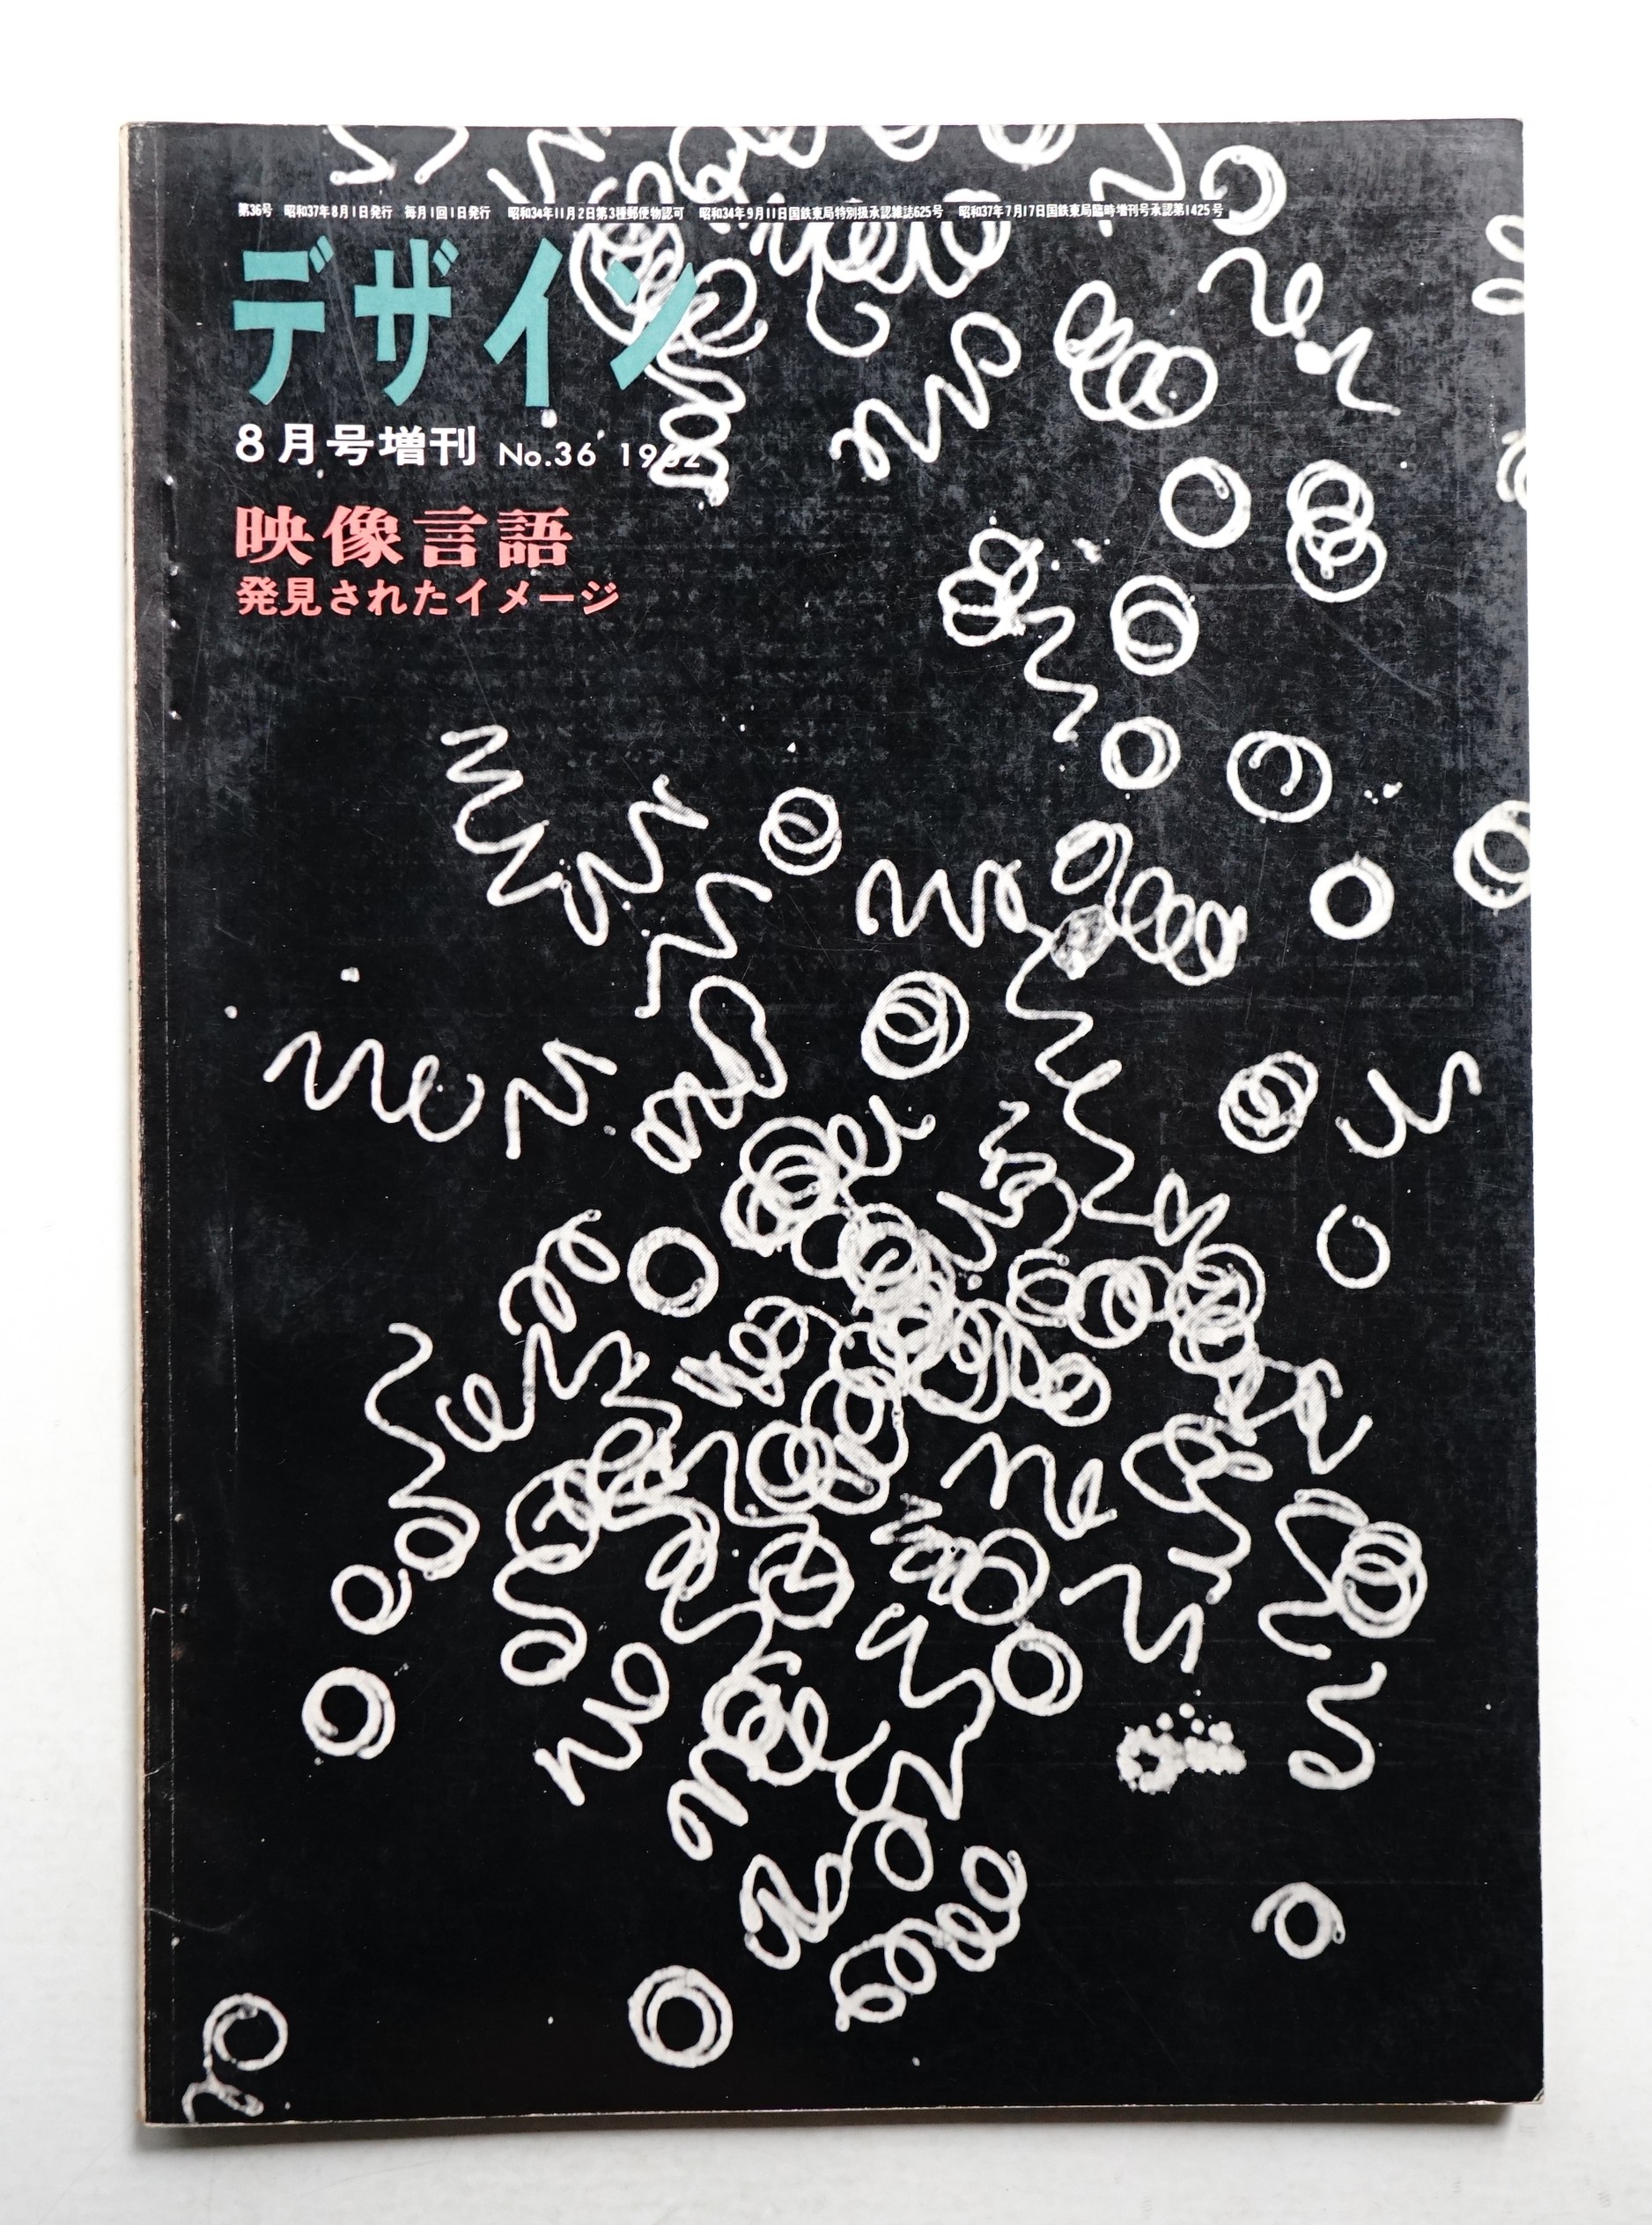 第36号 昭和37年8月1日発行 毎月1回1日発行 昭和34年11月2日第3種郵便物認可 昭和34年9月11日国鉄東局特別扱承認雑誌625号 昭和37年7月17日国鉄東局臨時増刊号承認第1425号
デザイン
8月号増刊 No.36 1962
映像言語
発見されたイメージ